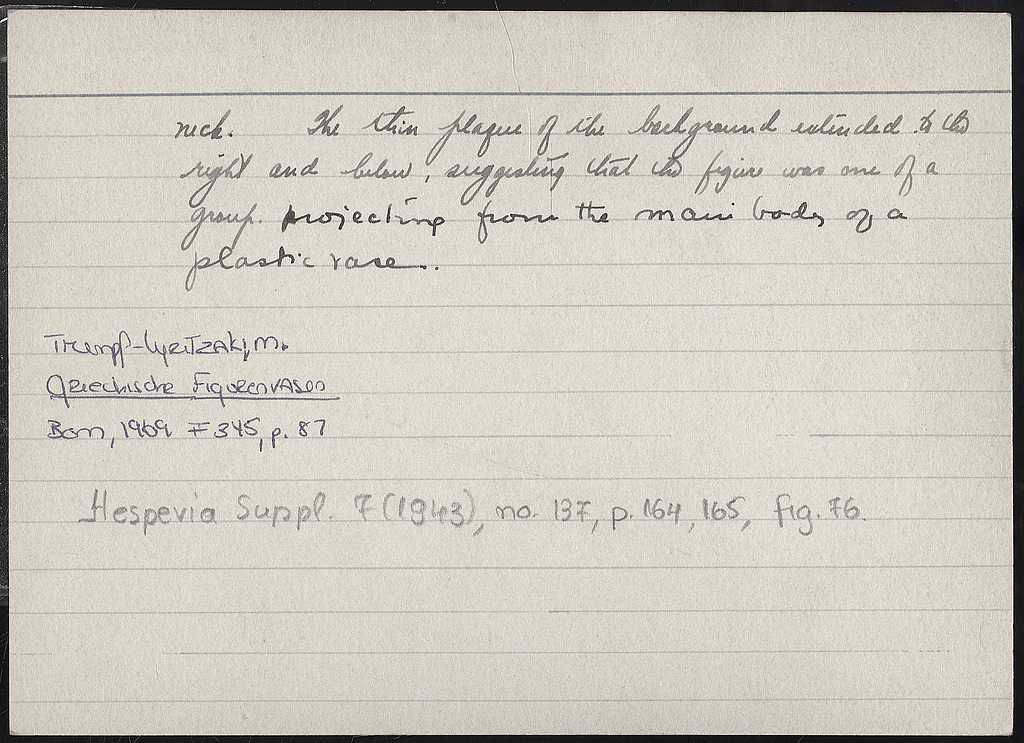 neck. The thin plaque of the background extended to the
right and below, suggesting that the figure was one of a
group. projecting from the main body of a
plastic vase.
Trumpf-Lyritzaki, M.
Griechische Figurenvasen
Bonn, 1969 F 345, p. 87
Hesperia Suppl. 7 (1943), no. 137, p. 164, 165, fig. 76.